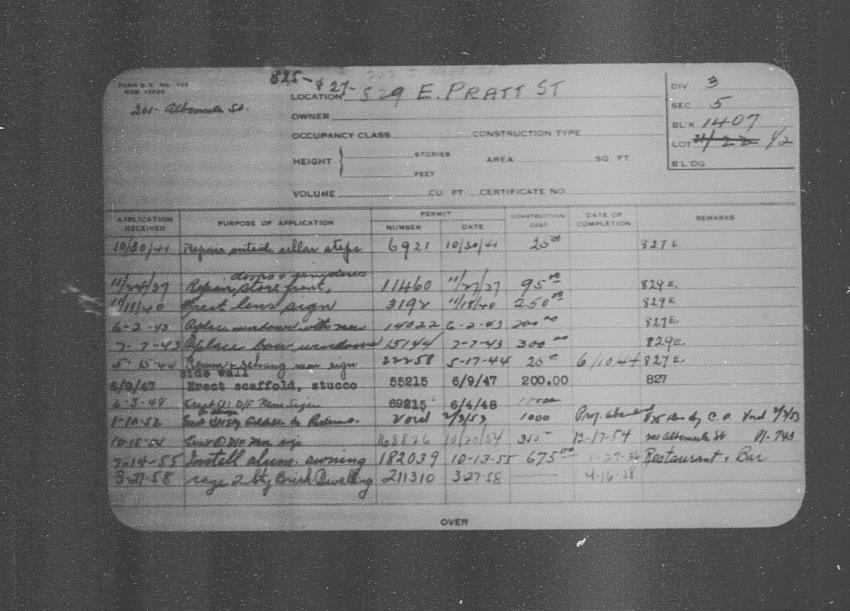 FORM
825-827-
LOCATION 829 E. PRATT ST
DIV 3
201- Albemarle St.
SEC 5
OWNER
BLK 1407
OCCUPANCY CLASS CONSTRUCTION TYPE
LOT 21/22 1/2
HEIGHT STORIES AREA SQ. FT.
FEET
B'L'DG
VOLUME CU. FT. CERTIFICATE NO
APPLICATION RECEIVED PURPOSE OF APPLICATION PERMIT CONSTRUCTION COST DATE OF COMPLETION REMARKS
NUMBER DATE
10/30/41 Repair outside cellar steps 6921 10/30/41 25 00 827 E.
doors & windows
11/27/37 Repair, store front, 11460 11/27/37 95 00 829 E
11/18/40 Erect sign 3192 11/18/40 250 00 829 E
6-2-43 Replace windows with new 14022 6-2-43 200 00 827 E.
7-7-43 Replace bow windows 15144 7-7-43 300 00 829 E.
5-15-44 sign 22258 5-17-44 25 00 6/10/44 827 E.
side wall
6/9/47 Erect scaffold, stucco 55215 6/9/47 200.00 827
6-3-48 Erect (1) D/F Neon Sign 69215 6/4/48
1-10-52 Void 2/3/53 1000
10-15-54 Erect (1) D/F Neon sign 168826 10/20/54 315 12-17-54 201 Albemarle St
7-14-55 Install alum. awning 182039 10-13-55 675 00 1-27-56 Restaurant & Bar
3-27-58 raze 2 Sty Brick Dwelling 211310 3-27-58 4-16-58
OVER